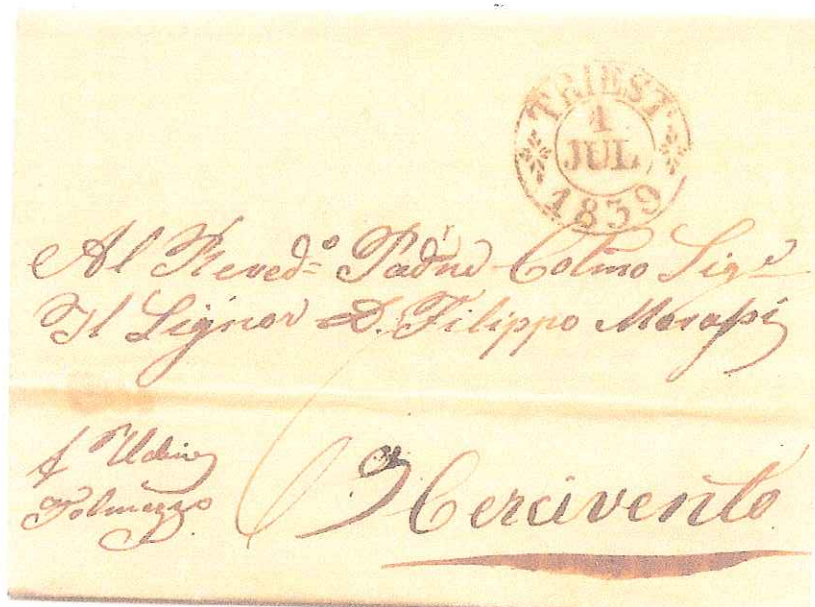 TRIEST
1
JUL
1839
Al Reved.º Padrē Colmo Sigr
Il Signor D. Filippo Morassi
Udine
Tolmezzo
Cercivento